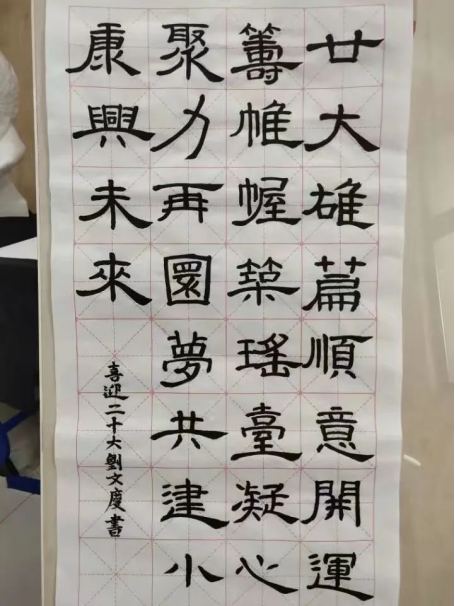 廿大雄篇順意開運
籌帷幄築瑤臺凝心
聚力再圓夢共建小
康興未來
喜迎二十大劉文慶書